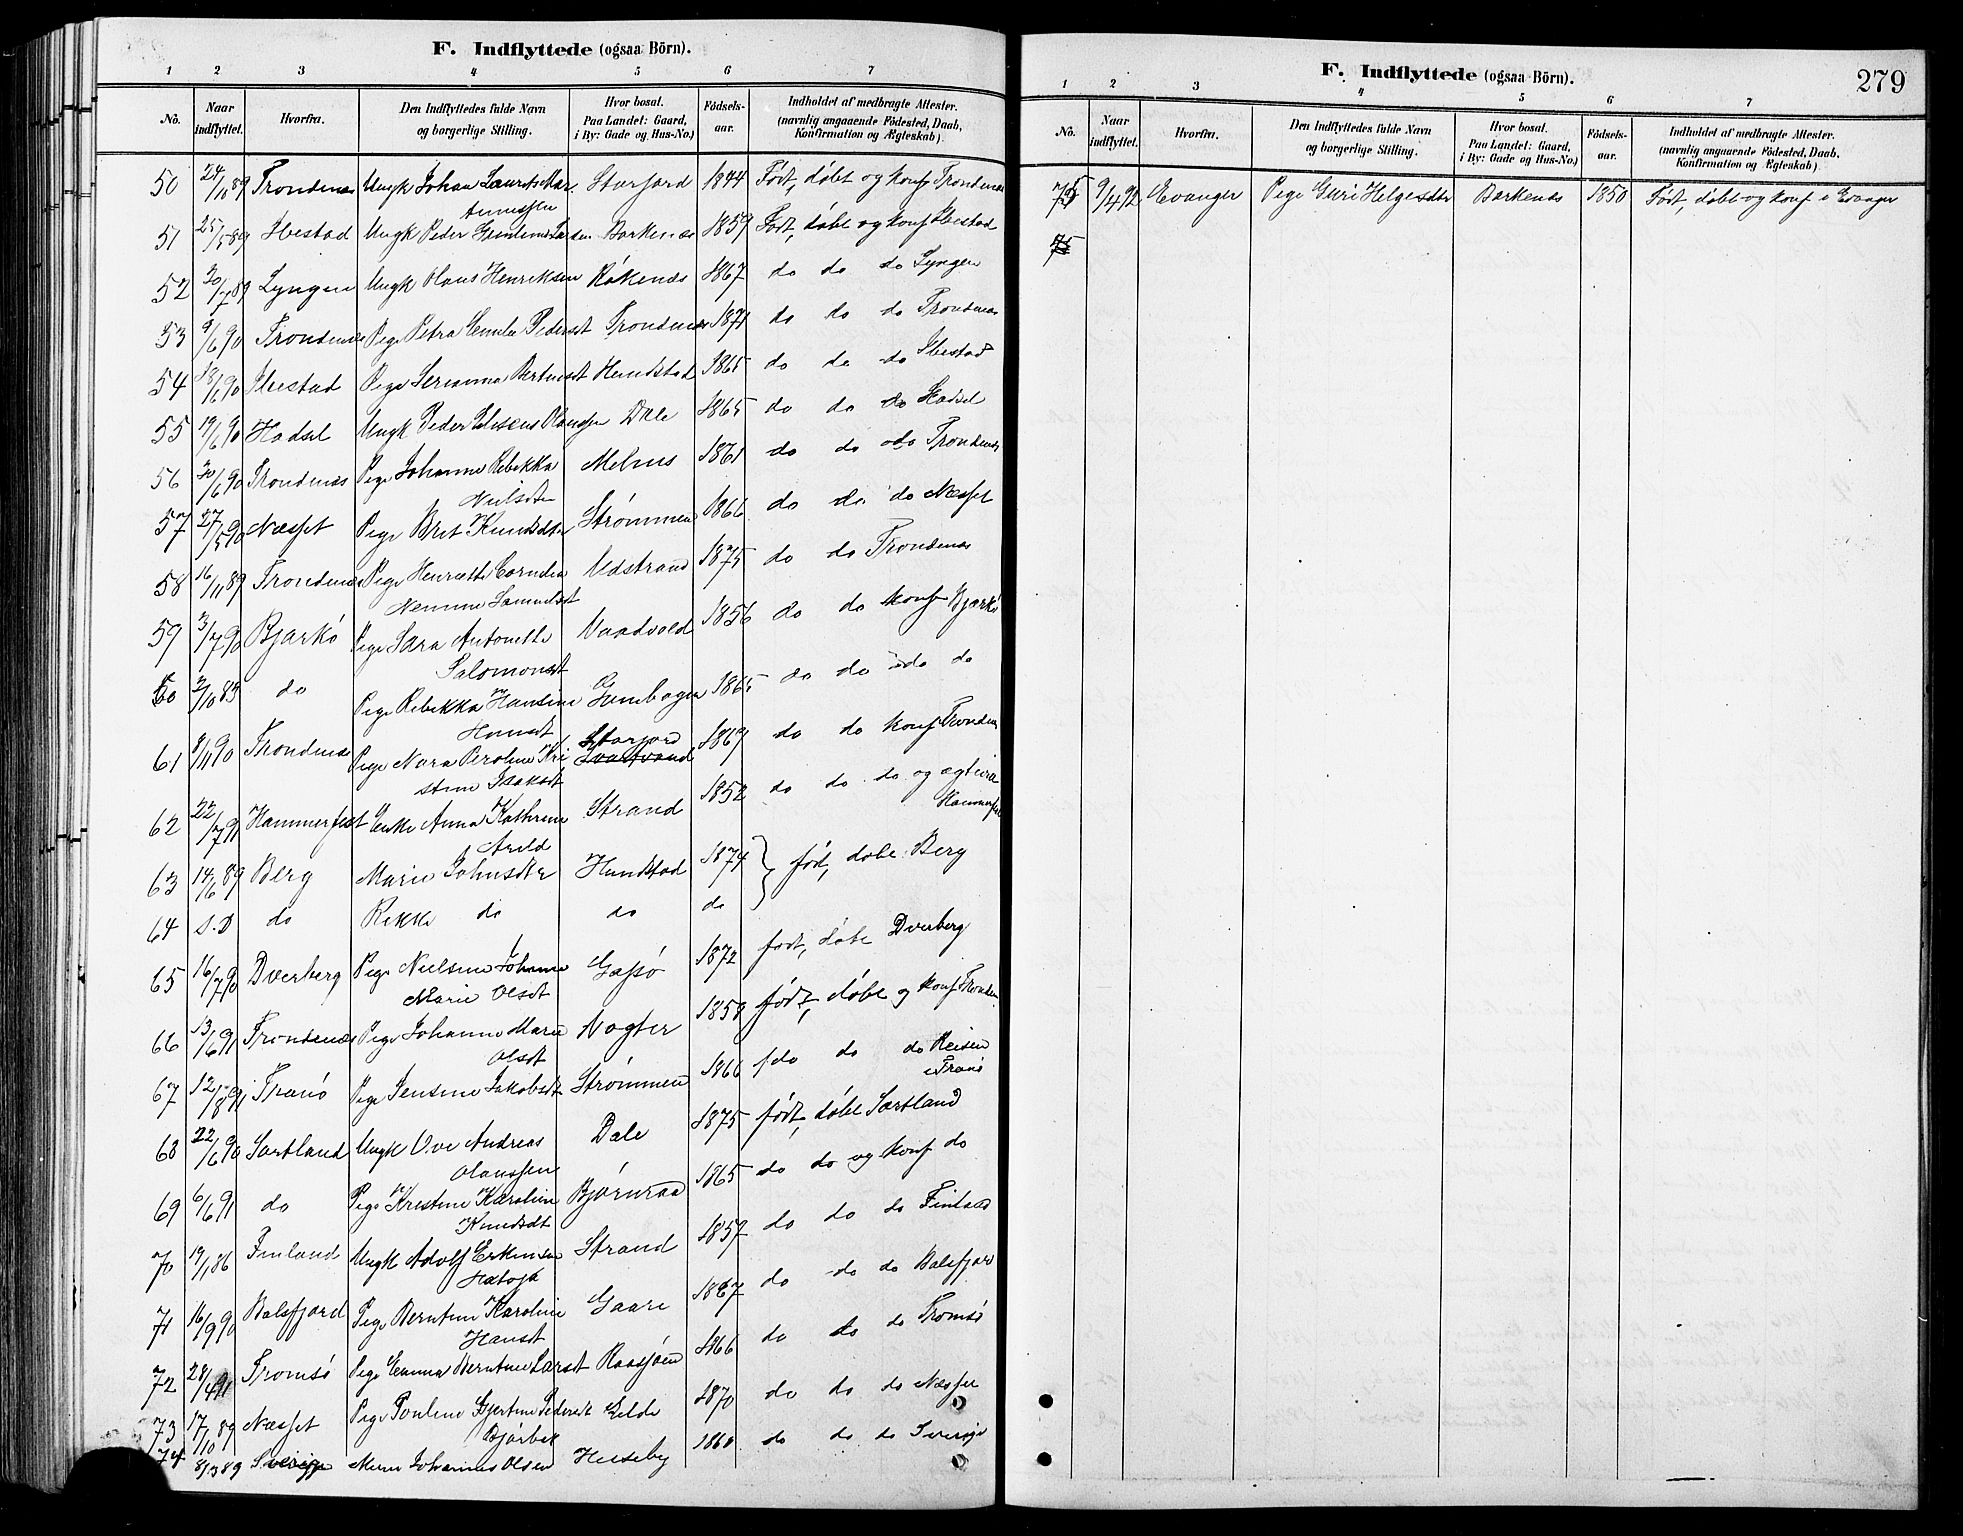 F. Indflyttede (ogsaa Börn).
1 2 3 4 5 6 7
No. Naar indflyttet. Hvorfra. Den Indflyttedes fulde Navn og borgerlige Stilling. Hvor bosat. Paa Landet: Gaard, i By: Gade og Hus-No.) Fødsels-aar. Indholdet af medbragte Attester. (navnlig angaaende Fødested, Daab, Konfirmation og Ægteskab)
50 24/10 89 Trondenæs Ungk Johan Laurits Mar Storjord 1844 Født, døbt og konf Trondenæs
51 25/5 89 Ibestad Ungk Peder Larsen Barkenæs 1859 Født, døbe og konf Ibestad
52 20/7 89 Lyngen Ungk Hans Henriksen Røkenæs 1867 do do do Lyngen
53 9/6 90 Trondenæs Pige Petra Emilie Pedersdt Trondenæs 1871 do do do Trondenæs
54 18/6 90 Ibestad Pige Serianna Berntsdt Hundstad 1865 do do do Ibestad
55 19/6 90 Hadsel Ungk Peder Hansen Dale 1865 do do do Hadsel
56 20/6 90 Trondenæs Pige Johanna Rebekka Melnæs 1861 do do do Trondenæs
Nielsdtr
57 27/5 90 Næsset Pige Brit Knudsdtr Strømmen 1866 do do do Næsset
58 16/11 89 Trondenæs Pige Henriette Cornelia Vdstrand 1875 do do Trondenæs
Samuelsdt
59 3/7 90 Bjarkø Pige Sara Antonette Vaadvold 1856 do do konf Bjarkø
Salomonsdt
60 2/10 83 do Pige Rebekka Hansine 1865 do do do do
Hansdt
61 8/11 90 Trondenæs Pige Nora Peroline Kri Storjord 1869 do do konf Trondenæs
stine Isaksdt
62 22/7 91 Hammerfest Enke Anna Kathrine Strand 1852 do do do og ægteviet
Arild Hammerfest
63 14/6 89 Berg Marie Johnsdtr Hundstad 1874 } født, døbe Berg
64 s.D do Rikke do do do
65 16/7 90 Dverberg Pige Nielsine Johanna Gapsø 1872 født, døbe Dverberg
Marie Olsdt
66 13/6 91 Trondenæs Pige Johanne Marie Nogter 1858 født, døbe og konf Trondenæs
Olsdt
67 12/8 91 Tranø Pige Jensine Jakobsdt Strømmen 1866 do do do Reisen
i Tranø
68 22/6 90 Sortland Ungk Ove Andreas Dale 1875 født, døbe Sortland
Olaussen
69 6/6 91 do Pige Kristine Karoline Bjørnraa 1865 do do og konf do
Knudsdt
70 19/1 86 Finland Ungk Adolf Eriksen Strand 1857 do do do Finland
71 16/9 90 Balsfjord Pige Berntine Karoline Gaare 1867 do do do Balsfjord
Hansdt
72 28/4 91 Tromsø Pige Emma Berntine Larsdt Raasjøen 1866 do do do Tromsø
73 17/10 89 Næsset Pige Pouline Gjertine Pedersdt Elde 1870 do do do Næsset
Bjørbek
74 8/3 89 Sverige Johannes Olsen Huseby 1860 do do do Sverige
F. Indflyttede (ogsaa Börn). 279
1 2 3 4 5 6 7
No. Naar indflyttet. Hvorfra. Den Indflyttedes fulde Navn og borgerlige Stilling. Hvor bosat. Paa Landet: Gaard, i By: Gade og Hus-No.) Fødsels-aar. Indholdet af medbragte Attester. (navnlig angaaende Fødested, Daab, Konfirmation og Ægteskab)
75 9/4 92 Evanger Pige Guri Helgesdtr Barkenæs 1850 Født, døbt og konf i Evanger
75